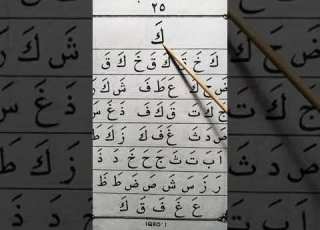 ٢٥
كَ
كَ خَ قَ كَ قَ خَ كَ قَ
ضَ جَ كَ عَ طَ فَ شَ كَ رَ
جَ كَ تَ قَ كَ فَ ذَ غَ سَ
صَ دَ ثَ غَ فَ كَ زَ كَ طَ
اَ بَ تَ ثَ جَ حَ خَ دَ ذَ
رَ زَ سَ شَ صَ ضَ طَ ظَ
عَ غَ فَ قَ كَ